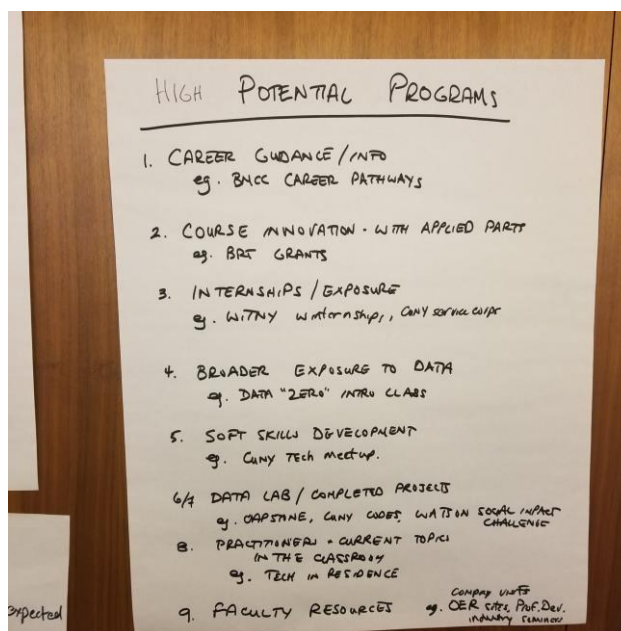 HIGH POTENTIAL PROGRAMS
1. CAREER GUIDANCE / INFO
eg. BMCC CAREER PATHWAYS
2. COURSE INNOVATION - WITH APPLIED PARTS
eg. BRT GRANTS
3. INTERNSHIPS / EXPOSURE
eg. WITNY Winternships, CUNY service corps
4. BROADER EXPOSURE TO DATA
eg. DATA "ZERO" INTRO CLASS
5. SOFT SKILLS DEVELOPMENT
eg. CUNY TECH meetup.
6/7 DATA LAB / COMPLETED PROJECTS
eg. CAPSTONE, CUNY CODES, WATSON SOCIAL IMPACT
CHALLENGE
8. PRACTITIONERS + CURRENT TOPICS
IN THE CLASSROOM
eg. TECH IN RESIDENCE
company visits
9. FACULTY RESOURCES eg. OER sites, Prof. Dev.
industry seminars
expected